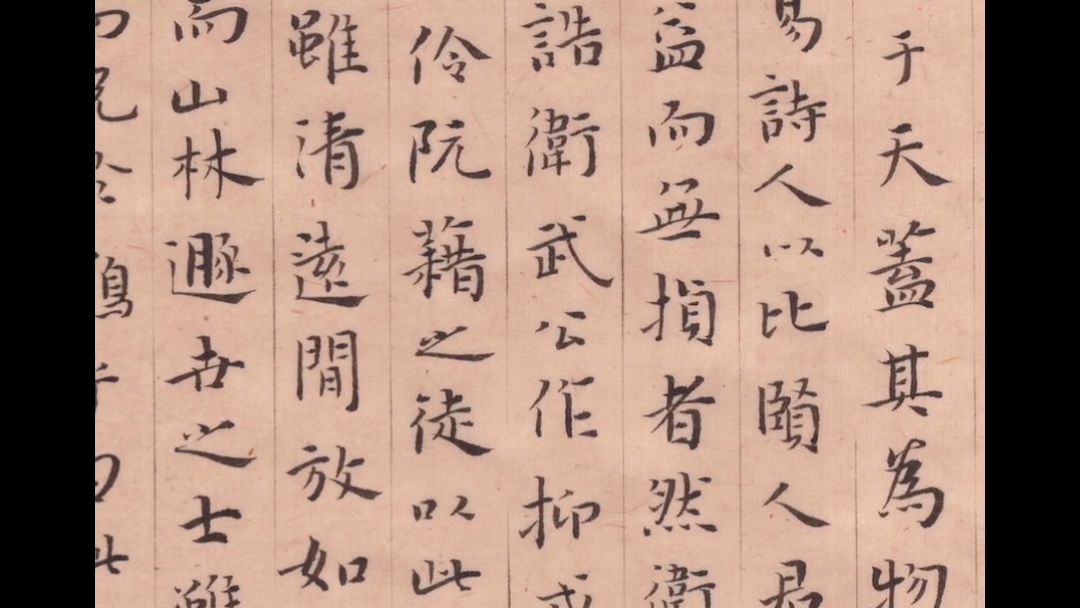 于天蓋其為物
易詩人以比賢人君
益而無損者然衛
誥衛武公作抑戒
伶阮藉之徒以此
雖清遠閒放如
而山林遯世之士雖